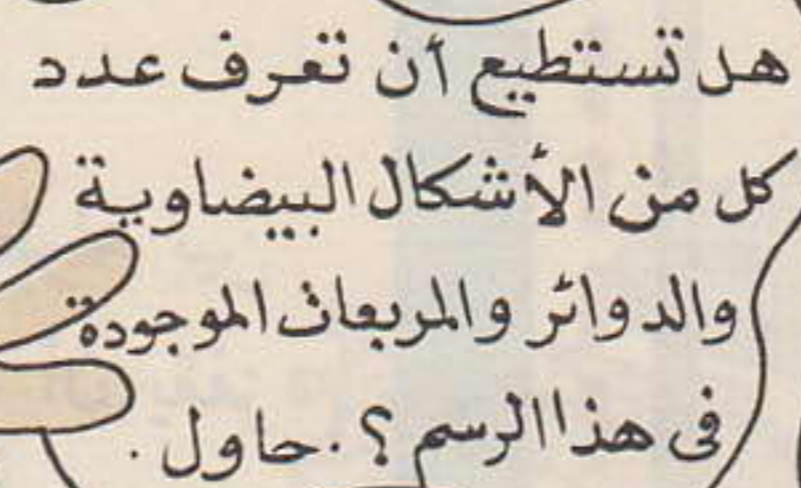 هل تستطيع أن تعرف عدد
كل من الأشكال البيضاوية
والدوائر والمربعات الموجودة
فى هذا الرسم ؟ . حاول .